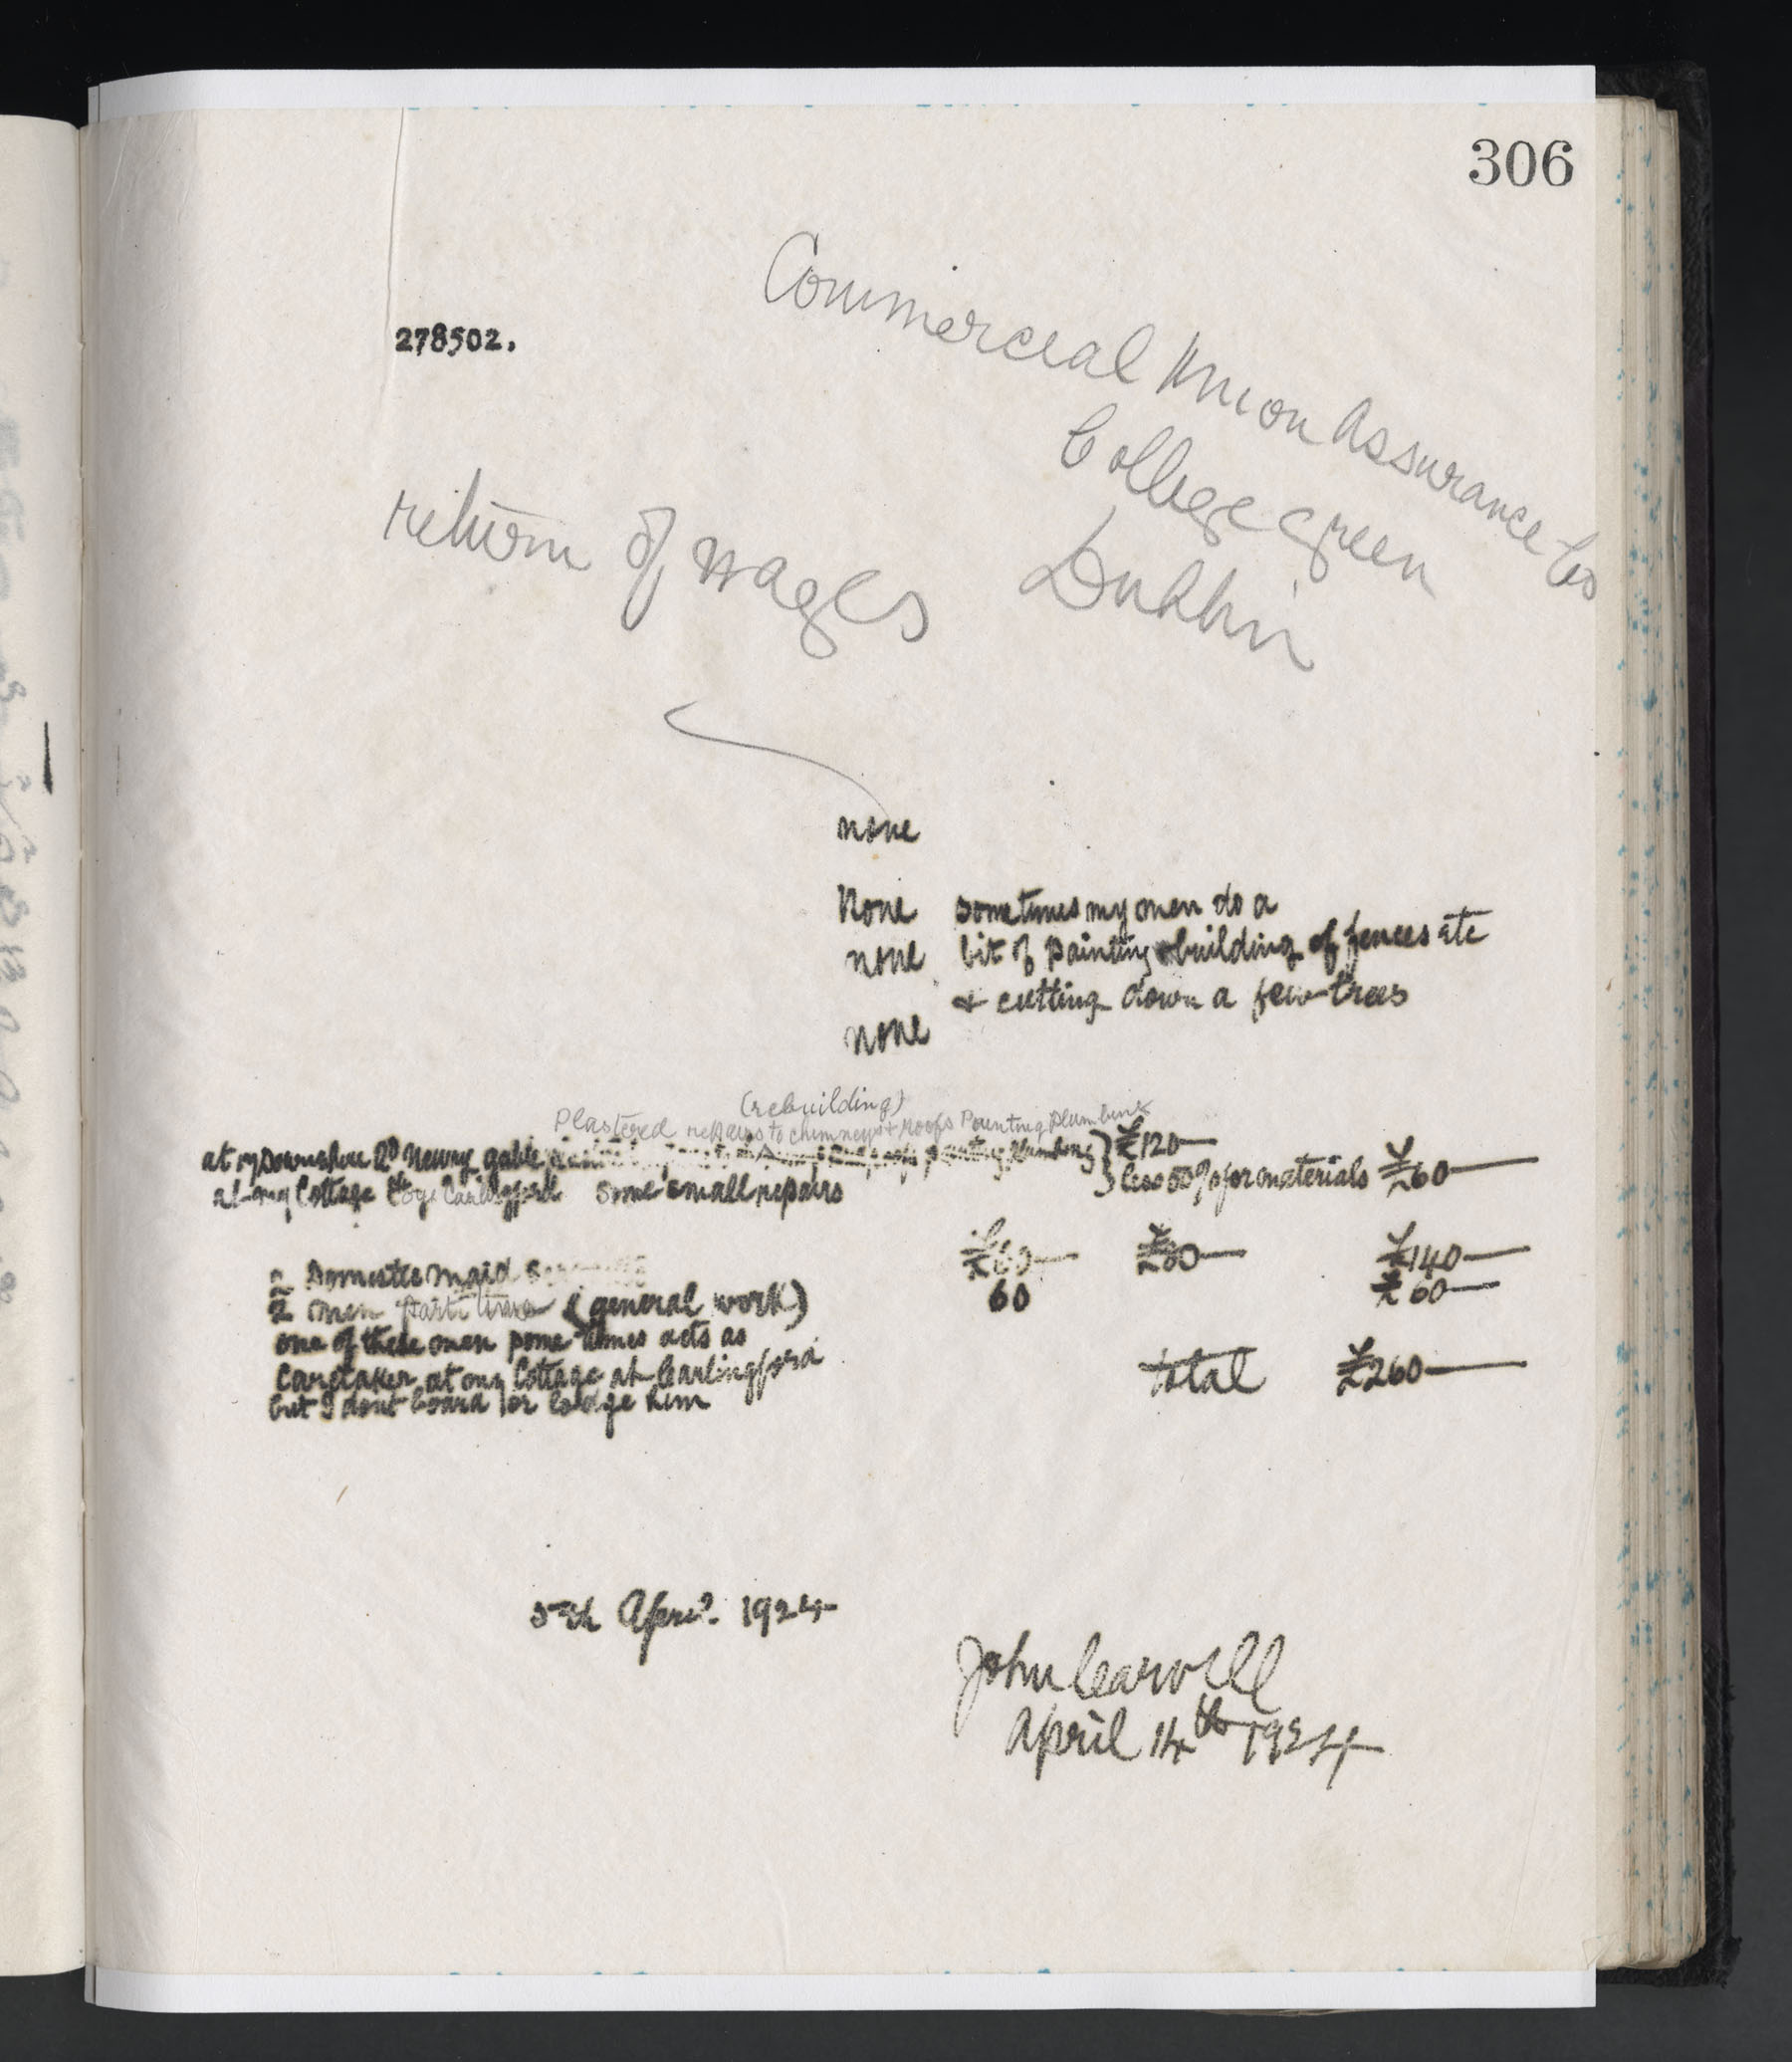 306
Commercial Union Assurance Co
278502.
College Green
return of wages
Dublin
none
None sometimes my men do a
none bit of painting & building of fences etc
& cutting down a few trees
none
(rebuilding)
Plastered repairs to chimneys & Roofs Painting Plumbing
at my Downshire Rd Newry gable painting plumbing } £120—
at my Cottage Carlingford some small repairs } less 50% for materials £60—
£60— £80— £140—
2 Domestic maid
2 men part time (general work) 60 £60—
one of these men some times acts as
caretaker at my Cottage at Carlingford total £260—
but I dont board or lodge him
5th April. 1924
John Carvill
April 14th 1924